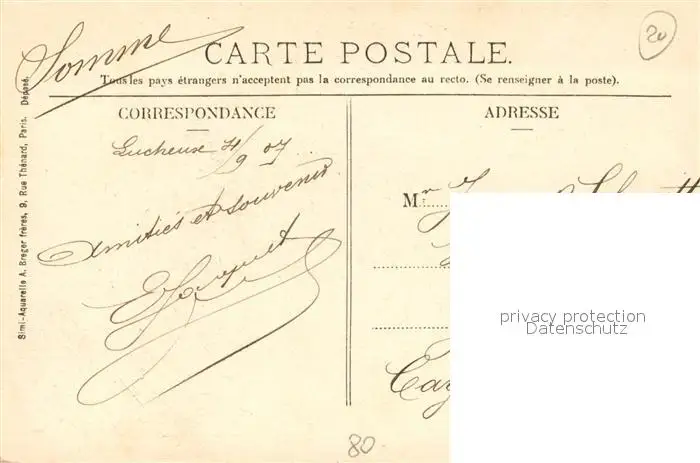 Somme
20
CARTE POSTALE.
Tous les pays étrangers n'acceptent pas la correspondance au recto. (Se renseigner à la poste).
CORRESPONDANCE
ADRESSE
Lucheux 4/9 07
Amitiés et souvenir
M
privacy protection
Datenschutz
80
Simi-Aquarelle A. Breger frères, 9, Rue Thénard, Paris. Déposé.